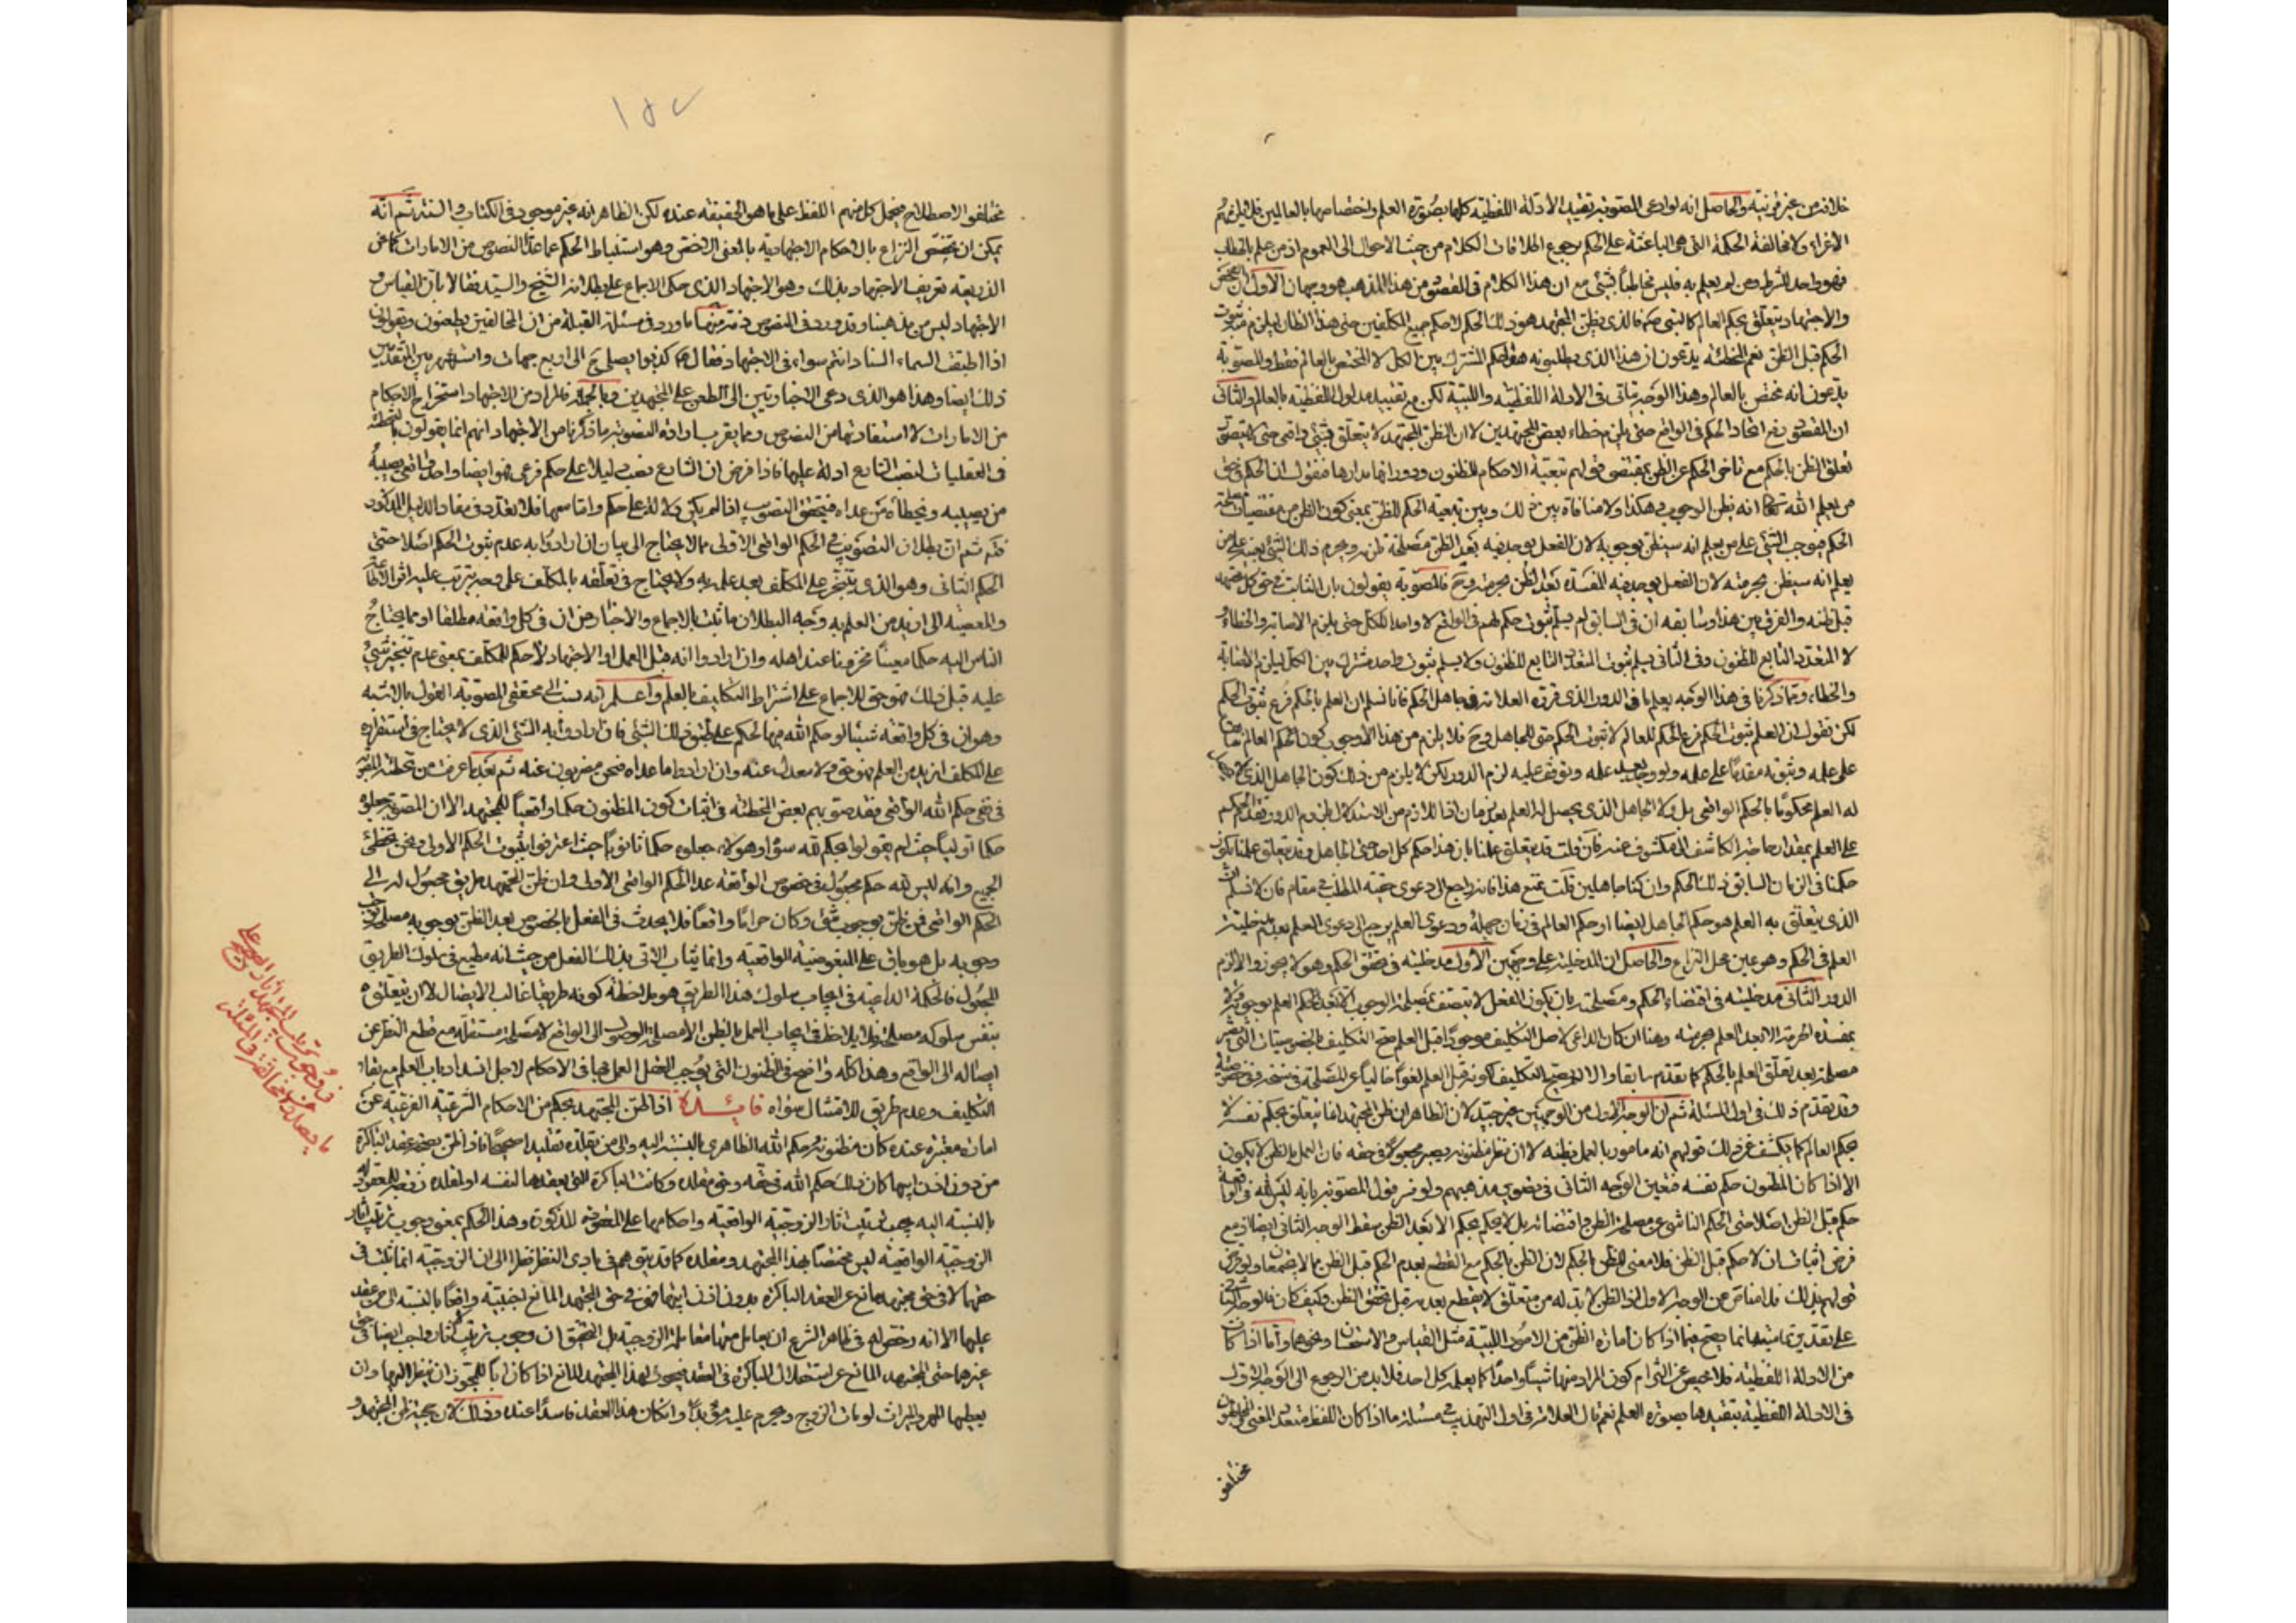 خلافه من غير قرينة والحاصل انه لو ادعى المصوبة تقييد الأدلة اللفظية كلها بصورة العلم واختصاصها بالعالمين فلا يلزمهم
الاغراء ولا مخالفة الحكمة التى هى الباعثة على الحكم يرجع اطلاقات الكلام من حيث الاحوال الى العموم اذ من علم بالخطاب
فهو واحد للشرط ومن لم يعلم به فليس مخاطبا بشئ مع ان هذا الكلام فى المقصود من هذا المذهب هو وجهان الأول ان
والاجتهاد يتعلق بحكم العالم كالنبى فالذى يظن المجتهد هو ذلك الحكم لا حكم جميع المكلفين حتى هذا الظان ليلزم ثبوت
الحكم قبل الظن نعم المخطئة يدعون ان هذا الذى يطلبونه هو الحكم المشترك بين الكل لا المختص بالعالم فقط والمصوبة
يدعون انه مختص بالعالم وهذا الوجه يتأتى فى الادلة اللفظية واللبية لكن مع تقييد مدلول اللفظية بالعالم والثانى
ان المقصود نفى اتحاد الحكم فى الواقع حتى يلزم خطاء بعض المجتهدين لا ان الظن المجتهد لا يتعلق بشئ واقعى حتى
تعلق الظن بالحكم مع تأخر الحكم عن الظن بمقتضى قولهم بتبعية الاحكام للظنون ودورانها مدارها فنقول ان الحكم فى حق
من يعلم الله تعالى انه يظن الوجوب هكذا ولا منافاة بين ذلك وبين تبعية الحكم للظن بمعنى كون الظن من مقتضيات
الحكم فيوجب الشئ على من يعلم انه سيظن بوجوبه لان الفعل يوجد فيه بعد الظن مصلحة ويحرم ذلك الشئ بعينه على من
يعلم انه سيظن بحرمته لان الفعل يوجد فيه المفسدة بعد الظن بحرمته وح فالمصوبة يقولون بان الثابت فى حق كل مجتهد
قبل ظنه والفرق بين هذا وسابقه ان فى السابق لم يسلم ثبوت حكم لهم فى الواقع لا واحدا للكل حتى يلزم الاصابة والخطاء
لا المتعدد التابع للظنون وفى الثانى يسلم ثبوت المتعدد التابع للظنون ولا يسلم ثبوت واحد مشترك بين الكل ليلزم الاصابة
والخطاء ومما ذكرنا فى هذا الوجه يعلم ما فى الدور الذى قرره العلامة فى جاهل الحكم فانا نسلم ان العلم بالحكم فرع ثبوت الحكم
لكن نقول ان العلم بثبوت الحكم فرع الحكم للعالم لا ثبوت الحكم حتى للجاهل وح فلا يلزم من هذا الا وجوب كون الحكم العالم
على علمه وثبوته مقدما على علمه ولو وجد بعد علمه وتوقف عليه لزم الدور لكن لا يلزم من ذلك كون الجاهل الذى
له العلم محكوما بالحكم الواقعى بل ولا الجاهل الذى يحصل له العلم بعد زمان اذ اللازم من الاستدلال لزوم الدور تقدم الحكم
على العلم بمقدار ما ضر الكاشف المنكشف عنه فان قلت قد يتعلق علمنا بان هذا حكم كل احد حتى الجاهل وقد يتعلق علمنا بكون
حكمنا فى الزمان السابق ذلك الحكم وان كنا جاهلين قلت نمنع هذا فانه راجع الى دعوى حقية المطلب فى مقام فان لا نسلم ان
الذى يتعلق به العلم هو حكم الجاهل ايضا او حكم العالم فى زمان جهله ودعوى العلم يرجع الى دعوى العلم بعدم مدخلية
العلم فى الحكم وهو عين محل النزاع والحاصل ان المدخلية على وجهين الأول مدخليته فى تحقق الحكم وهو لا يجوز والا لزم
الدور الثانى مدخليته فى اقتضاء الحكم ومصلحته بان يكون الفعل لا يتصف بمصلحة الوجوب الا بعد الحكم العلم بوجوبه ولا
بمفسدة الحرمة الا بعد العلم بحرمته وهنا ان كان الداعى لاصل التكليف موجودا قبل العلم صح التكليف بالخصوصيات التى
مصلحة بعد تعلق العلم بالحكم كما تقدم سابقا والا لم يصح التكليف لكونه قبل العلم لغوا خاليا عن المصلحة
وقد تقدم ذلك فى اول المسئلة ثم ان الوجه الاول من الوجهين غير جيد لان الظاهر ان ظن المجتهد انما يتعلق بحكم نفسه لا
بحكم العالم كما يكشف عن ذلك قولهم انه مامور بالعمل بظنه لا ان نفس مظنونه يصير مجعولا فى حقه فان العمل بالظن لا يكون
الا اذا كان المظنون حكم نفسه فتعين الوجه الثانى فى تصوير مذهبهم ولو فسر قول المصوبة بانه ليس لله فى الواقعة
حكم قبل الظن اصلا حتى الحكم الناشى عن مصلحة الظن واقتضائه بل لا يحكم بحكم الا بعد الظن سقط الوجه الثانى ايضا اذ مع
فرض اثبات ان لا حكم قبل الظن فلا معنى للظن بالحكم لان الظن بالحكم مع القطع بعدم الحكم قبل الظن مما لا يجتمعان ولو فرض
قولهم بذلك فلا مناص من الوجه الاول اذ الظن لا بد له من متعلق لا يقطع بعدمه قبل تحقق الظن وكيف كان فالوجه الثانى
على تقدير تماميته انما يصح فيما اذا كان امارة الظن من الامور اللبية مثل القياس والاستحسان ونحوهما واما اذا كان
من الادلة اللفظية فلا محيص عن التزام كون المراد منها شيئا واحدا كما يعلم كل احد فلا بد من الرجوع الى الوجه الاول
فى الادلة اللفظية بتقييدها بصورة العلم نعم قال العلامة فى اول التهذيب فى مسئلة ما اذا كان اللفظ متعدد المعنى
مختلفو
١٥٧
مختلفو الاصطلاح فيحمل كل منهم اللفظ على ما هو الحقيقة عنده لكن الظاهر انه غير موجود فى الكتاب والسنة ثم انه
يمكن ان يختص النزاع بالاحكام الاجتهادية بالمعنى الاخص وهو استنباط الحكم عما عدا النصوص من الامارات كما عن
الذريعة تعريف الاجتهاد بذلك وهو الاجتهاد الذى حكى الاجماع على بطلانه الشيخ والسيد فقالا بان القياس و
الاجتهاد ليس من مذهبنا وقد ورد فى النصوص ذمه منها ما ورد فى مسئلة القبلة من ان المخالفين يطعنون ويقولون
اذا اطبقت السماء السنا وانتم سواء فى الاجتهاد فقال ع كذبوا يصلى ح الى اربع جهات واشتهر بين المتقدمين
ذلك ايضا وهذا هو الذى دعى الاخباريين الى الطعن على المجتهدين وبالجملة فالمراد من الاجتهاد استخراج الاحكام
من الامارات لا استفادتها من النصوص ومما يقرب ارادة التصويب ما ذكرنا من الاجتهاد انهم انما يقولون بالتخطئة
فى العقليات لنصب الشارع ادلة عليها فاذا فرض ان الشارع نصب دليلا على حكم فرعى فهو ايضا واحد واقعى يصيبه
من يصيبه ويخطأه من عداه فيتحقق التصويب اذا لم يكن دلالة على حكم واما معها فلا تعدد فى مفاد الدليل المذكور
ثم ان بطلان التصويب فى الحكم الواقعى الاولى مما لا يحتاج الى بيان ان ارادوا به عدم ثبوت الحكم اصلا حتى
الحكم الثانى وهو الذى يتنجز على المكلف بعد علمه به ولا يحتاج فى تعلقه بالمكلف على وجه يترتب عليه اثر الاطاعة
والمعصية الى ازيد من العلم به وجه البطلان ما ثبت بالاجماع والاخبار من ان فى كل واقعة مطلقا او مما يحتاج
الناس اليه حكما معينا مخزونا عند اهله وان ارادوا انه قبل العمل او الاجتهاد لا حكم للمكلف بمعنى عدم تنجز شئ
عليه قبل ذلك فهو حق للاجماع على اشتراط التكاليف بالعلم واعلم انه نسب الى محققى المصوبة القول بالاشبه
وهو ان فى كل واقعة شيئا لو حكم الله فيها لحكم على طبق ذلك الشئ فان ارادوا به الشئ الذى لا يحتاج فى استقراره
على المكلف ازيد من العلم فهو حق ولا معدل عنه وان ارادوا ما عداه فنحن مضربون عنه ثم بعد ما عرفت من تخطئة
فى نفى حكم الله الواقعى فقد صوبهم بعض المخطئة فى اثبات كون المظنون حكما واقعيا للمجتهد الا ان المصوبة جعلوه
حكما اوليا حيث لم يقولوا بحكم لله سواه وهؤلاء جعلوه حكما ثانويا حيث اعترفوا بثبوت الحكم الاولى ونحن نخطئ
الجميع وانه ليس لله حكم مجعول فى خصوص الواقعة عدا الحكم الواقعى الاولى وان ظن المجتهد طريق مجعول له الى
الحكم الواقعى فمن ظن بوجوب شئ وكان حراما واقعا فلا يحدث فى الفعل بالخصوص بعد الظن بوجوبه مصلحة توجب
وجوبه بل هو باق على المبغوضية الواقعية وانما يثاب الاتى بذلك الفعل من حيث انه مطيع فى سلوك الطريق
المجعول فالحكمة الداعية فى ايجاب سلوك هذا الطريق هو ملاحظة كونه طريقا غالب الايصال لا ان يتعلق
بنفس سلوكه مصلحة ولا يلاحظ فى ايجاب العمل بالظن الا مصلحة الوصول الى الواقع لا مصلحة مستقلة مع قطع النظر عن
ايصاله الى الواقع وهذا كله واضح فى الظنون التى يوجب العقل العمل بها فى الاحكام لاجل انسداد باب العلم مع بقاء
التكليف وعدم طريق للامتثال سواه فائدة اذا ظن المجتهد بحكم من الاحكام الشرعية الفرعية عن
امارة معتبرة عنده كان مظنونه حكم الله الظاهرى بالنسبة اليه والى من يقلده تقليدا صحيحا فاذا ظن بصحة عقد الباكرة
من دون اذن ابيها كان ذلك حكم الله فى حقه وحق مقلده وكانت الباكرة التى يعقدها لنفسه او لمقلده زوجة للمعقود له
بالنسبة اليه يجب ترتيب اثار الزوجية الواقعية واحكامها على المعقودة المذكورة وهذا الحكم بمعنى وجوب ترتيب اثار
الزوجية الواقعية ليس مختصا بهذا المجتهد ومقلده كما قد يتوهم فى بادى النظر نظرا الى ان الزوجية انما ثبت فى
حقهما لا فى حق مجتهد مانع عن العقد الباكرة بدون اذن ابيها فهى فى حق المجتهد المانع اجنبية واقعا بالنسبة الى من عقد
عليها الا انه رخص له فى ظاهر الشرع ان يعامل معها معاملة الزوجية بل التحقيق ان وجوب ترتيب الاثار واجب ايضا فى حق
غيرهما حتى المجتهد المانع عن استقلال الباكرة فى العقد فيجوز لهذا المجتهد المانع اذا كان ابا للمجوز ان ينظر اليها وان
يعطيها المهر والميراث لو مات الزوج ويحرم عليه مؤبدا وان كان هذا العقد فاسدا عنده وذلك لان حجية ظن المجتهد و
فى وجوب ترتيب المجتهد اثار الصحة على
ما يصدر عن مخالفه فى المسئلة